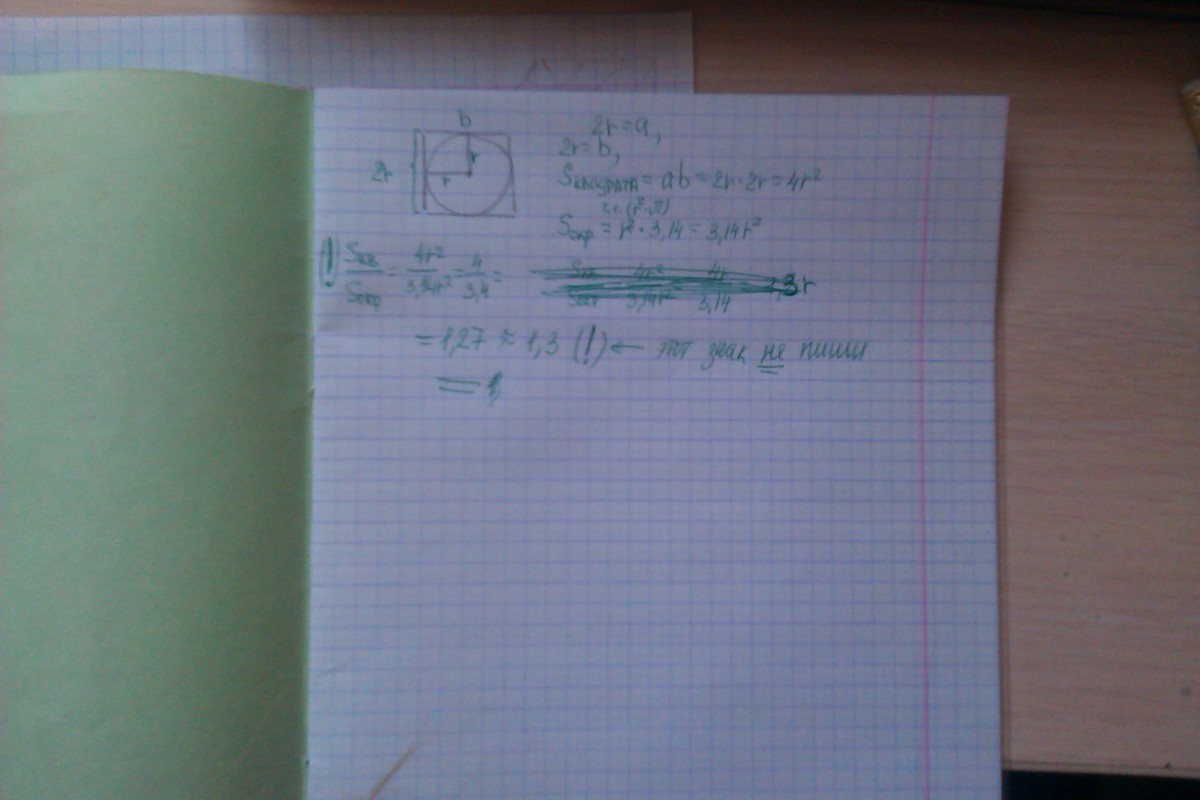 b
2r = a,
2r = b,
2r
r
r
Sквадрата = ab = 2r · 2r = 4r²
т.е. (r² · π)
Sокр = r² · 3,14 = 3,14r²
(!) Sкв/Sокр = 4r²/3,14r² = 4/3,4 =
= 1,27 ≈ 1,3 (!) ← этот знак не пиши